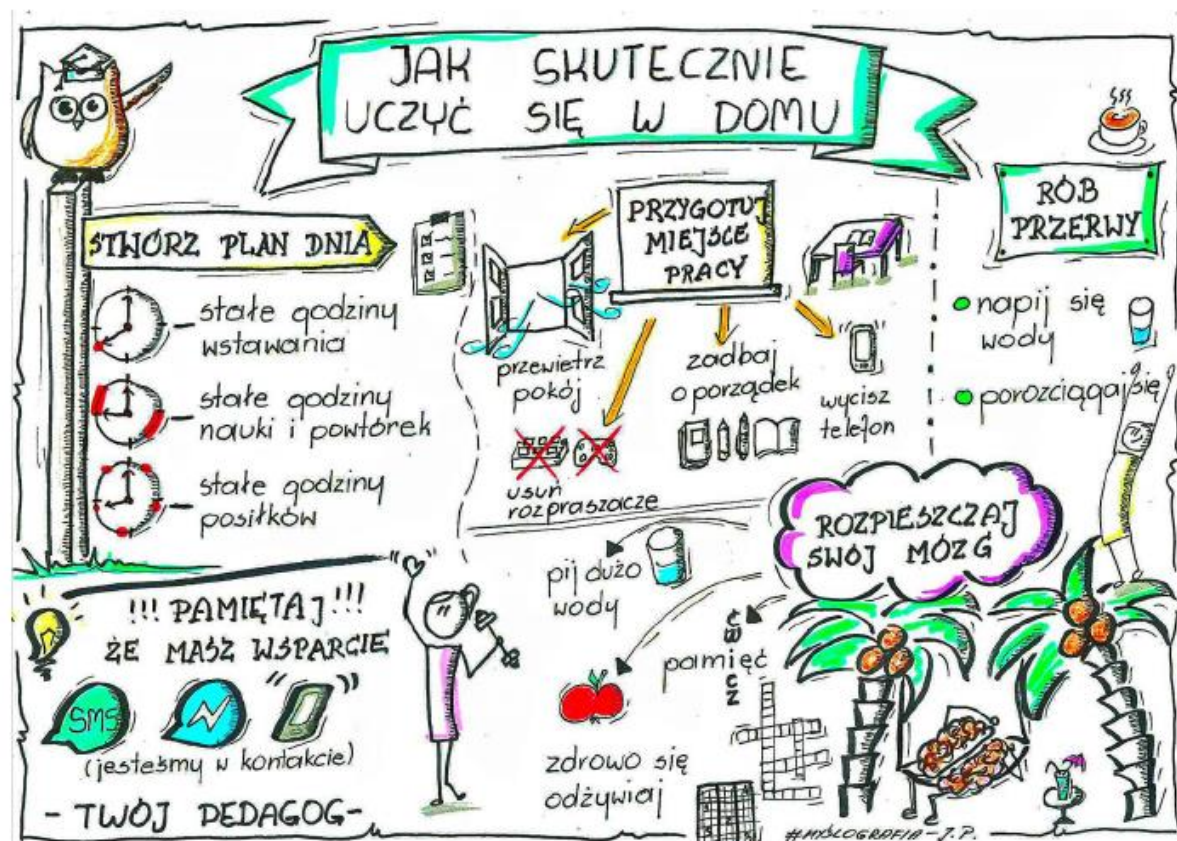 JAK SKUTECZNIE
UCZYĆ SIĘ W DOMU
STWÓRZ PLAN DNIA
stałe godziny
wstawania
stałe godziny
nauki i powtórek
stałe godziny
posiłków
PRZYGOTUJ
MIEJSCE
PRACY
przewietrz
pokój
usuń
rozpraszacze
zadbaj
o porządek
wycisz
telefon
RÓB
PRZERWY
napij się
wody
porozciągaj się
ROZPIESZCZAJ
SWÓJ MÓZG
pij dużo
wody
zdrowo się
odżywiaj
ćwicz
pamięć
!!! PAMIĘTAJ !!!
ŻE MASZ WSPARCIE
SMS
(jesteśmy w kontakcie)
- TWÓJ PEDAGOG -
#MYŚLOGRAFIA - J.P.